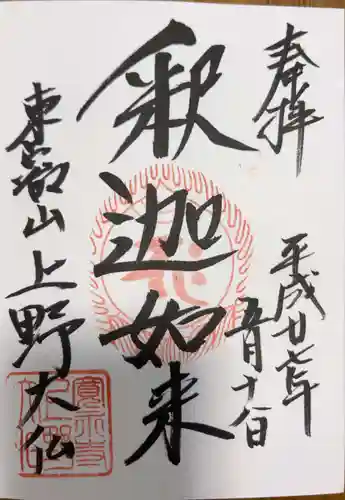 奉拝
平成廿七年
五月十八日
釈迦如来
東叡山上野大仏